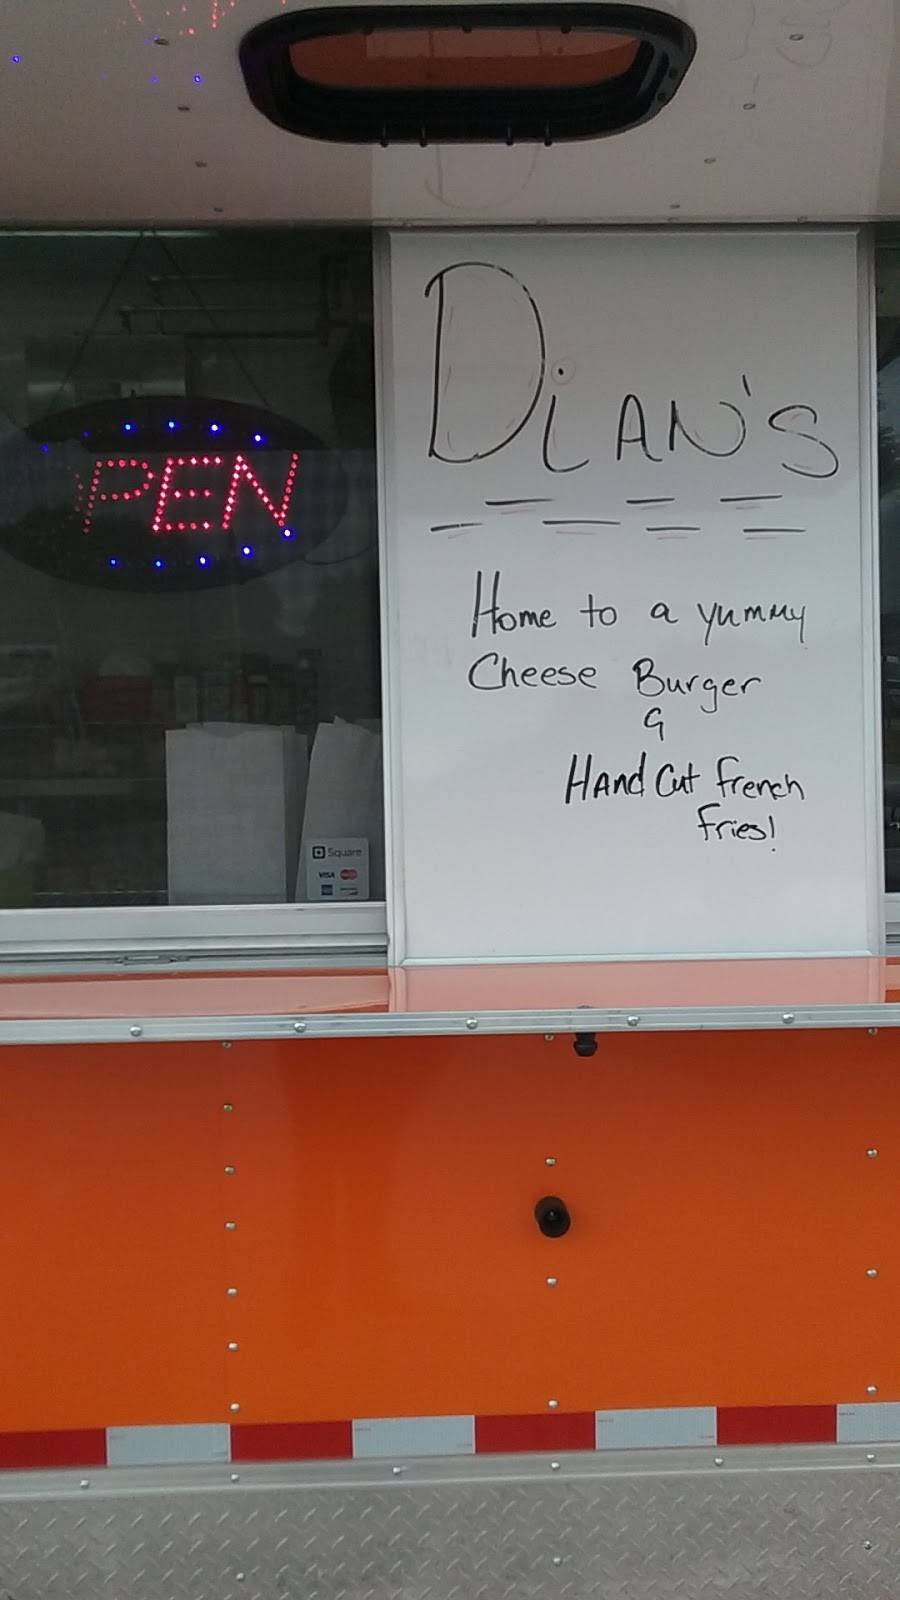 DiAN's
Home to a yummy
Cheese Burger
&
HAnd Cut french
fries!
PEN
Square
VISA